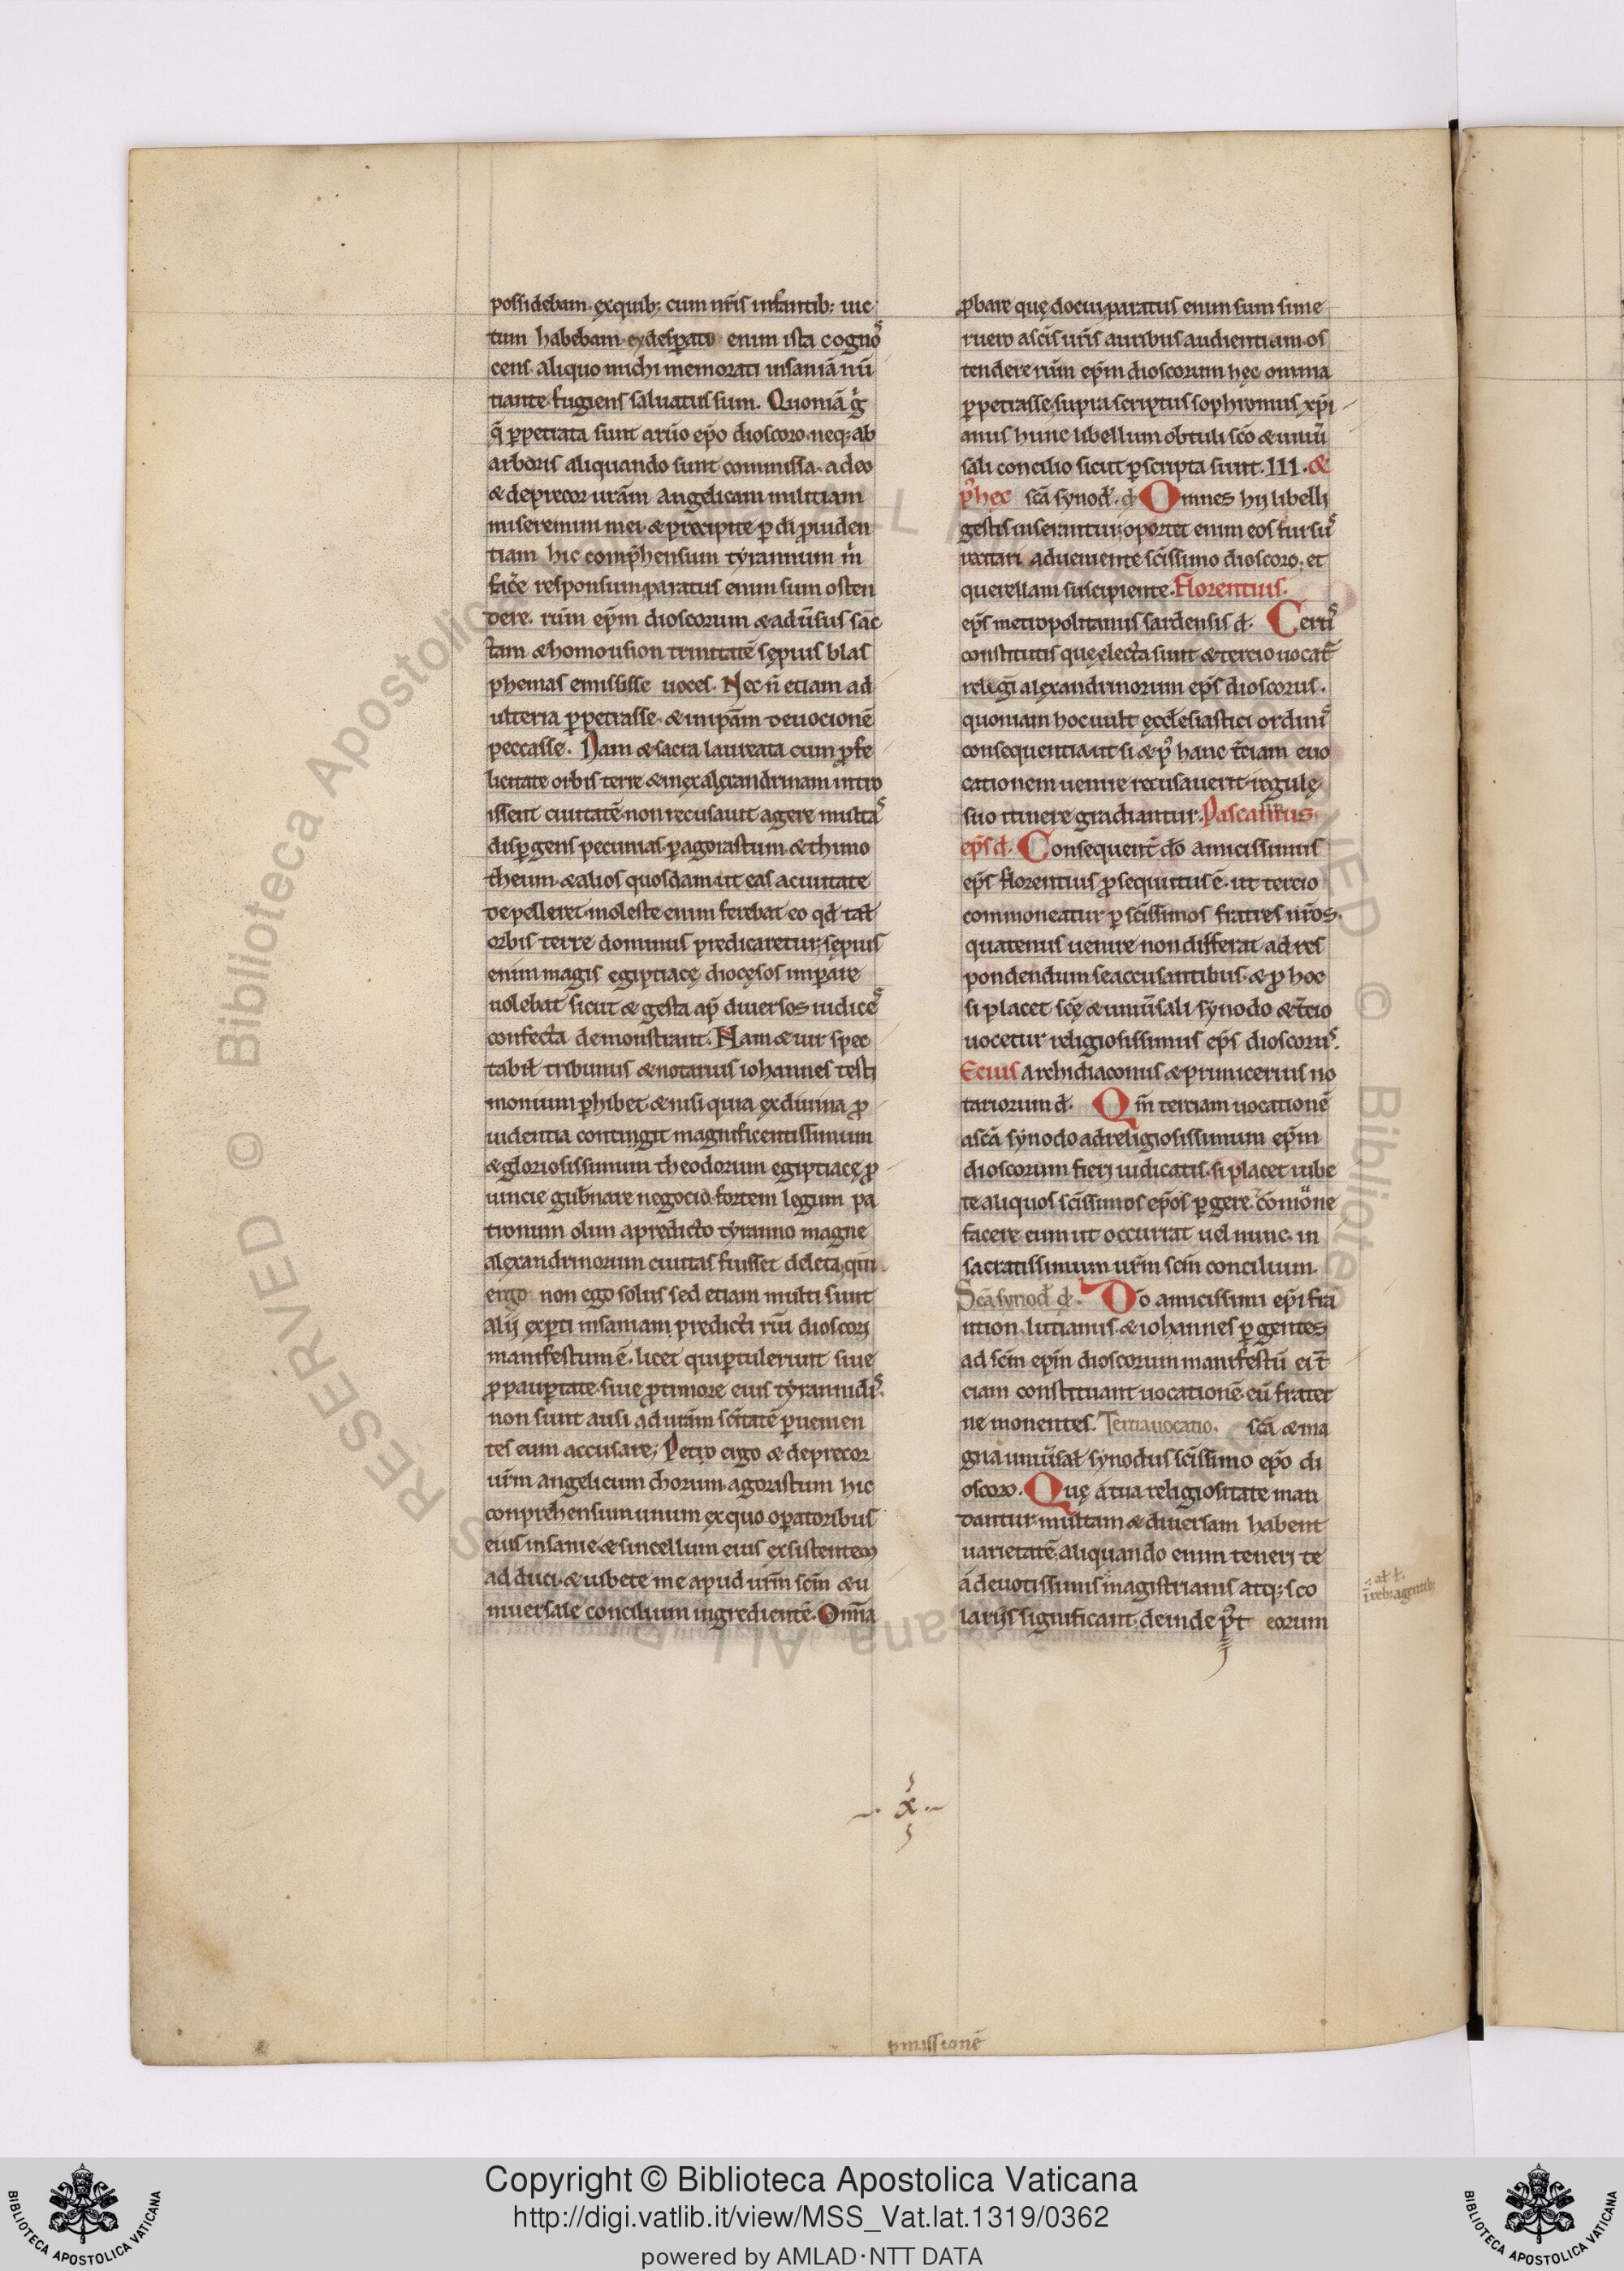 possidebam. ęx quib; cum nr̄is infantib; uic
tum habebam. ex desꝑato enim ista cognos
cens. aliquo michi memorati insaniā nū
tiante. fugiens saluatus sum. Quoniā g̊
q̄ ꝑpetrata sunt arúo ep̄o dioscoro. neq; ab
arboris aliquando sunt commissa. adeo
& deprecor urām angelicam militiam
miseremini mei. & precipite ꝑ di ꝓuiden
tiam hic comp̄hensum tyrannum m̊
fac̄e responsum. paratus enim sum osten
dere. rūm ep̄m dioscorum & adūsus sāc
tam & homousion trinitatē sępius blas
phemas emississe uoces. Nec n̄ etiam ad
ulteria ꝑpetrasse. & in ip̄am deuocionē
peccasse. Nam & sacra laureata cum ꝓ fe
licitate orbis terre & in ęx alexandrinam intro
issent ciuitatē. non recusauit agere multas
disꝑgens pecunias. ꝑ agorastum & thimo
theum. & alios quosdam. ut eas a ciuitate
depelleret. moleste enim ferebat eo qd̄ tal̄
orbis terre dominus predicaretur; sępius
enim magis egiptiacę diocęsos imꝑare
uolebat sicut & gesta ap̄ diuersos iudices
confecta demonstrant. Nam & uir spec
tabil̄ tribunus & notarius iohannes testi
monium ꝑhibet. & nisi quia ęx diuina ꝓ
uidentia contingit magnificentissimum
& gloriosissimum theodorum egiptiacę ꝓ
uincie gub̄nare negocio. fortem legum pa
tronum olim a predicto tyranno magne
alęxandrinorum ciuitas fuisset deleta. qm̄
ergo non ego solus sed etiam multi sunt
alij ęxꝑti insaniam predicti rūi dioscorj
manifestum ē. licet qui ꝑtulerunt siue
ꝓ pauꝑtate. siue ꝓ timore eius tyrannidis.
non sunt ausi ad urām sc̄itatē ꝑuenien
tes eum accusare; Peto ergo & deprecor
ur̄m angelicum chorum. agorastum hic
conprehensum unum ęx quo oꝑatoribus
eius insanie. & sincellum eius exsistentem
adduci. & iubete me apud ur̄m sc̄m & u
niuersale concilium ingrediente. Om̄ia
ꝓbare quę docui. paratus enim sum si me
ruero a sc̄is ur̄is auribus audientiam. os
tendere rūm ep̄m dioscorum hęc omnia
ꝑpetrasse; supra scriptus sophronius xp̄i
anus hunc libellum obtuli sc̄o & uniuer
sali concilio sicut ꝑscripta sunt. III. &
p' hec sc̄a synod'. d̄. Omnes hij libelli
gestis inserantur; oportet enim eos rursus
recitari adueniente sc̄issimo dioscoro. et
querellam suscipiente. Florentius.
ep̄s metropolitanus sardensis d̄. Certis
constitutis quę electa sunt & tercio uocat̄
religi alęxandrinorum ep̄s dioscorus.
quoniam hoc uult ęcclesiastici ordinis
consequentia. ut si & p' hanc t̄ciam euo
cationem uenire recusauerit. regulę
suo itinere gradiantur. Pascasinus
ep̄s d̄. Consequent̄ dō amicissimus
ep̄s florentius ꝓsequutus ē. ut tercio
commoneatur ꝑ sc̄issimos fratres nr̄os.
quatenus uenire non differat ad res
pondendum se accusantibus. & ꝓ hoc
si placet sc̄ę & uniūsali synodo & t̄cio
uocetur religiosissimus ep̄s dioscorus.
Ecius archidiaconus & primicerius no
tariorum d̄. Qm̄ terciam uocationē
a sc̄a synodo ad religiosissimum ep̄m
dioscorum fieri iudicatis. si placet iube
te aliquos sc̄issimos ep̄os ꝑgere. com̄onē
facere eum ut occurrat uel nunc. in
sacratissimum ur̄m sc̄m concilium.
Sc̄a synod' d̄. Dō amicissimi ep̄i fra
ntion. lutianus. & iohannes ꝑgentes
ad sc̄m ep̄m dioscorum manifestū ei t̄
ciam constituant uocationē. eū frater
ne monentes. Tercia uocatio. sc̄a & ma
gna uniūsal̄ synodus sc̄issimo ep̄o di
oscoro. Quę a tua religiositate man
dantur. multam & diuersam habent
uarietatē. aliquando enim teneri te
a deuotissimis magistrianis atq; sco
larijs significant. deinde p't eorum
al̄ t.
ī rebꝫ agentib;
x
ꝑmissionē
Copyright © Biblioteca Apostolica Vaticana
http://digi.vatlib.it/view/MSS_Vat.lat.1319/0362
powered by AMLAD·NTT DATA
BIBLIOTECA APOSTOLICA VATICANA
BIBLIOTECA APOSTOLICA VATICANA